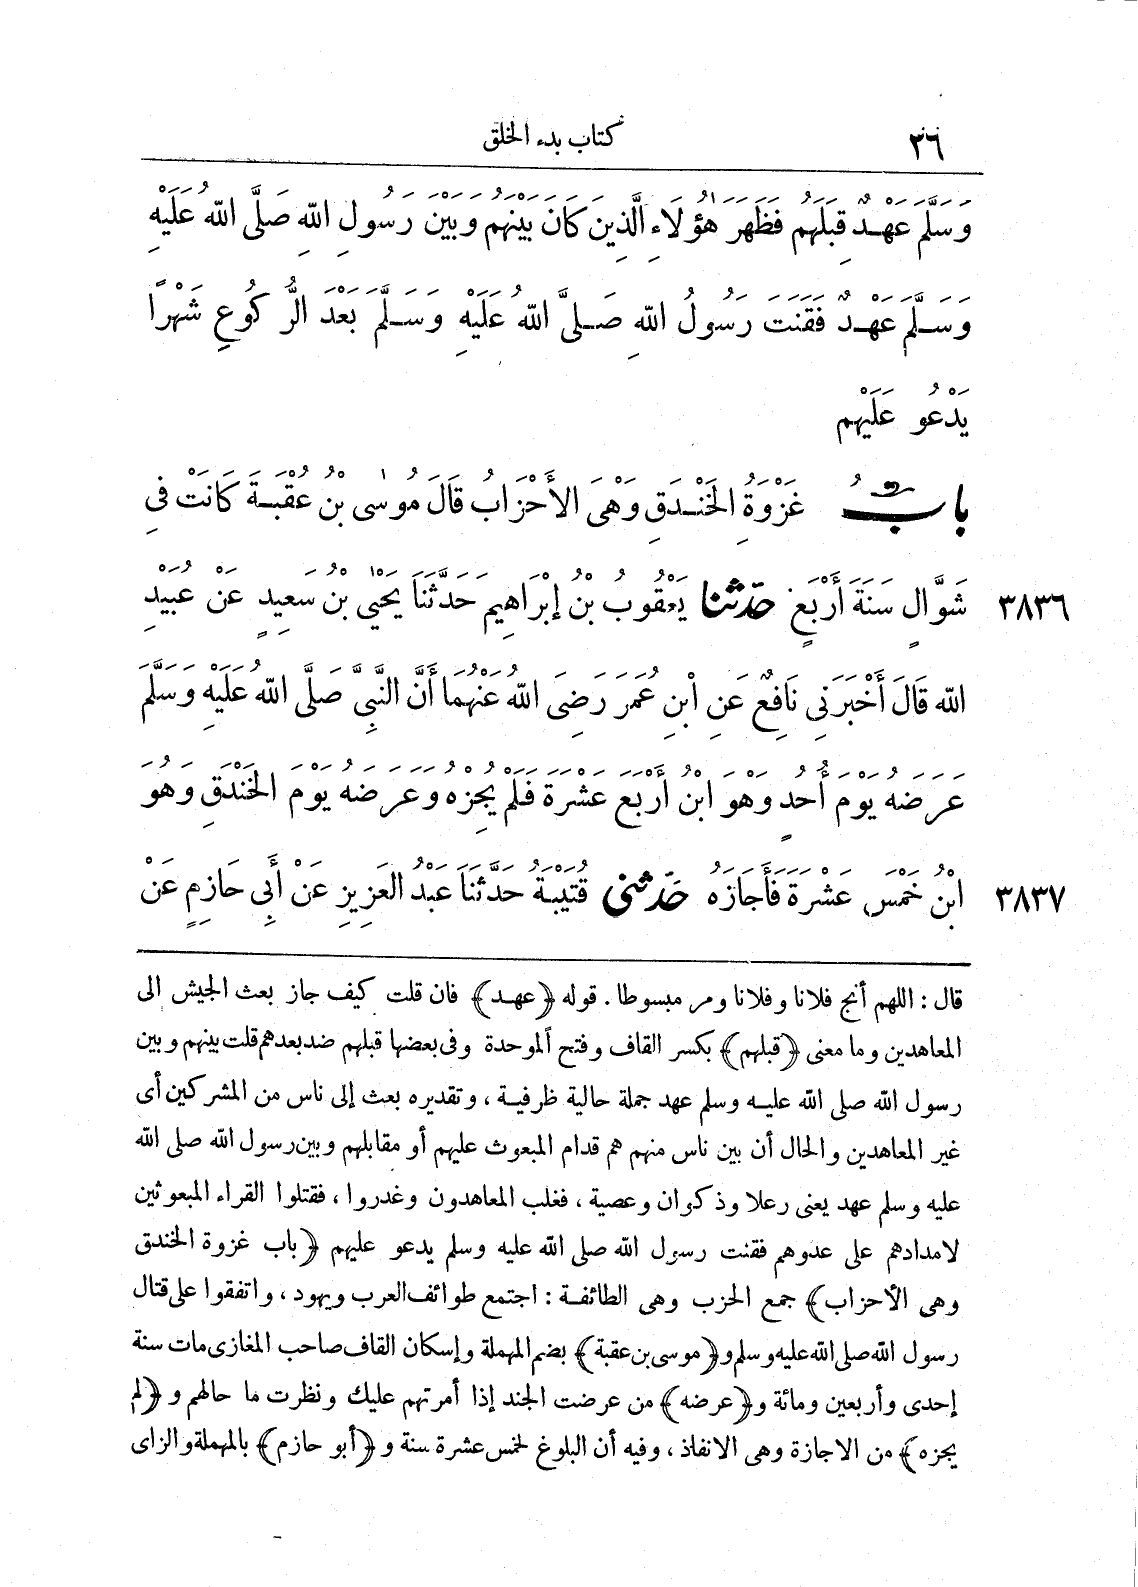 ٣٦ كتاب بدء الخلق
وَسَلَّمَ عَهْدٌ قِبَلَهُمْ فَظَهَرَ هٰؤُلَاءِ الَّذِينَ كَانَ بَيْنَهُمْ وَبَيْنَ رَسُولِ اللهِ صَلَّى اللهُ عَلَيْهِ
وَسَلَّمَ عَهْدٌ فَقَنَتَ رَسُولُ اللهِ صَلَّى اللهُ عَلَيْهِ وَسَلَّمَ بَعْدَ الرُّكُوعِ شَهْرًا
يَدْعُو عَلَيْهِمْ
بَابُ غَزْوَةُ الخَنْدَقِ وَهْىَ الأَحْزَابُ قَالَ مُوسٰى بْنُ عُقْبَةَ كَانَتْ فِى
٣٨٣٦ شَوَّالٍ سَنَةَ أَرْبَعٍ حَدّثنا يَعْقُوبُ بْنُ إِبْرَاهِيمَ حَدَّثَنَا يَحْيٰى بْنُ سَعِيدٍ عَنْ عُبَيْدِ
اللهِ قَالَ أَخْبَرَنِى نَافِعٌ عَنِ ابْنِ عُمَرَ رَضِىَ اللهُ عَنْهُمَا أَنَّ النَّبِىَّ صَلَّى اللهُ عَلَيْهِ وَسَلَّمَ
عَرَضَهُ يَوْمَ أُحُدٍ وَهُوَ ابْنُ أَرْبَعَ عَشْرَةَ فَلَمْ يُجِزْهُ وَعَرَضَهُ يَوْمَ الخَنْدَقِ وَهُوَ
٣٨٣٧ ابْنُ خَمْسَ عَشْرَةَ فَأَجَازَهُ حَدّثنى قُتَيْبَةُ حَدَّثَنَا عَبْدُ العَزِيزِ عَنْ أَبِى حَازِمٍ عَنْ
قال : اللهم أنج فلانا وفلانا ومر مبسوطا . قوله ﴿عهد﴾ فان قلت كيف جاز بعث الجيش الى
المعاهدين وما معنى ﴿قبلهم﴾ بكسر القاف وفتح الموحدة وفى بعضها قبلهم ضد بعدهم قلت بينهم وبين
رسول الله صلى الله عليه وسلم عهد جملة حالية ظرفية ، وتقديره بعث إلى ناس من المشركين أى
غير المعاهدين والحال أن بين ناس منهم هم قدام المبعوث عليهم أو مقابلهم وبين رسول الله صلى الله
عليه وسلم عهد يعنى رعلا وذكوان وعصية ، فغلب المعاهدون وغدروا ، فقتلوا القراء المبعوثين
لامدادهم على عدوهم فقنت رسول الله صلى الله عليه وسلم يدعو عليهم ﴿باب غزوة الخندق
وهى الأحزاب﴾ جمع الحزب وهى الطائفة : اجتمع طوائف العرب ويهود ، واتفقوا على قتال
رسول الله صلى الله عليه وسلم و﴿موسى بن عقبة﴾ بضم المهملة وإسكان القاف صاحب المغازى مات سنة
إحدى وأربعين ومائة و﴿عرضه﴾ من عرضت الجند إذا أمرتهم عليك ونظرت ما حالهم و ﴿لم
يجزه﴾ من الاجازة وهى الانفاذ ، وفيه أن البلوغ لخمس عشرة سنة و ﴿أبو حازم﴾ بالمهملة والزاى